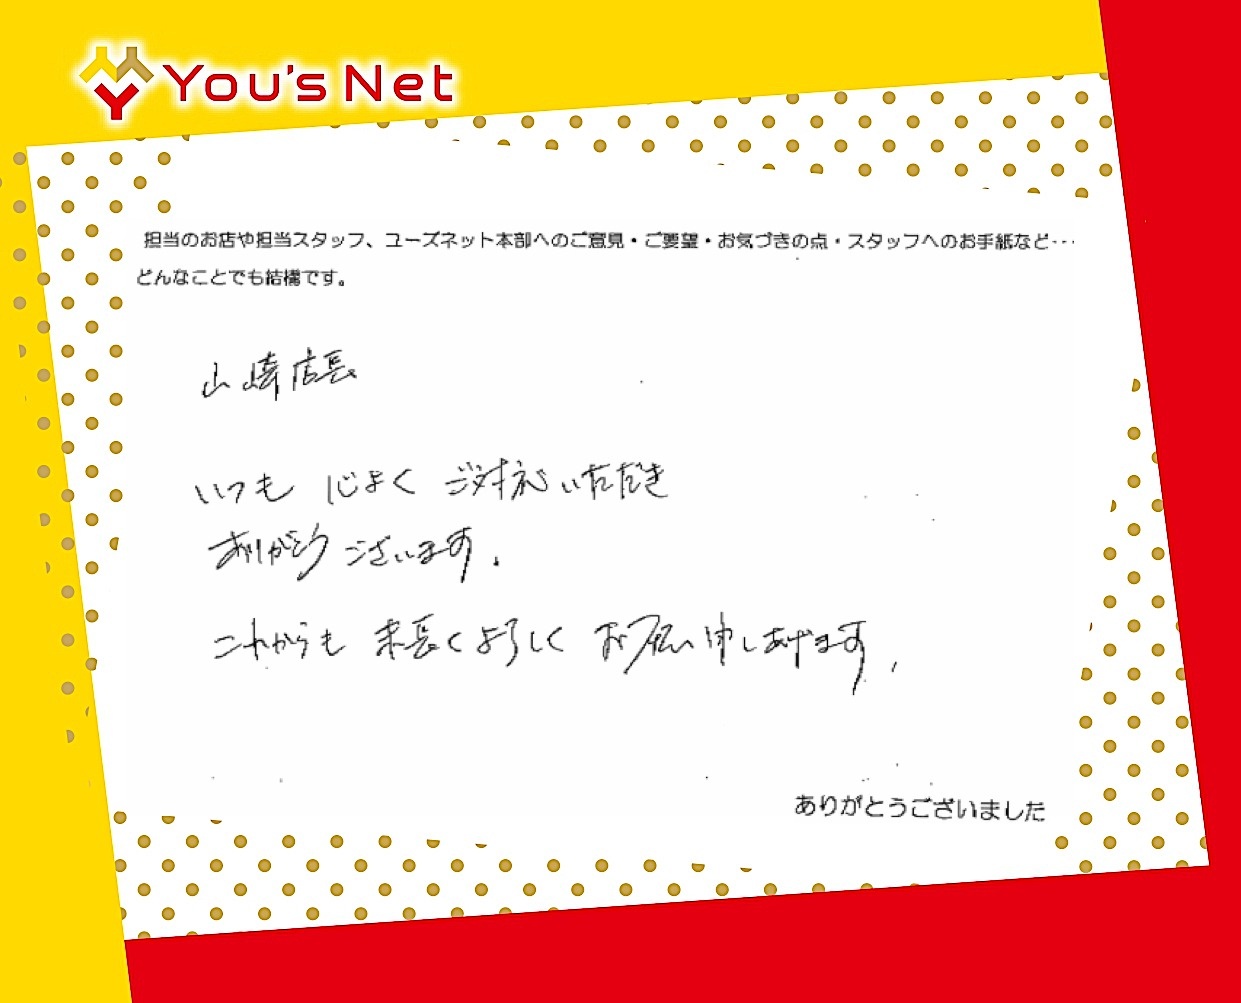 You's Net
担当のお店や担当スタッフ、ユーズネット本部へのご意見・ご要望・お気づきの点・スタッフへのお手紙など…
どんなことでも結構です。
山崎店長
いつも じよく ご対応いただき
ありがとう ございます。
これからも 末長くよろしく お願い申しあげます。
ありがとうございました